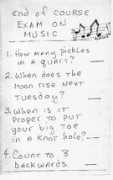 End of COURSE
EXAM ON
MUSIC
1. How many pickles
in a quart?
2. When does the
moon rise next
Tuesday?
3. When is it
proper to put
your big toe
in a knot hole?
4. Count to 8
backwards